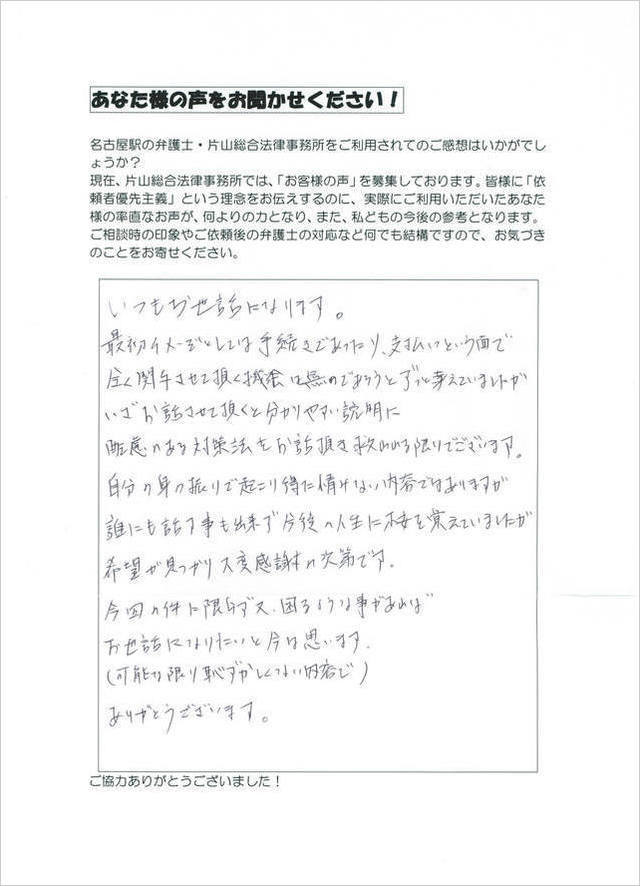 あなた様の声をお聞かせください！
名古屋駅の弁護士・片山総合法律事務所をご利用されてのご感想はいかがでし
ょうか？
現在、片山総合法律事務所では、「お客様の声」を募集しております。皆様に「依
頼者優先主義」という理念をお伝えするのに、実際にご利用いただいたあなた
様の率直なお声が、何よりの力となり、また、私どもの今後の参考となります。
ご相談時の印象やご依頼後の弁護士の対応など何でも結構ですので、お気づき
のことをお寄せください。
いつもお世話になります。
最初イメージとしては手続きであったり、支払いという面で
全く関与させて頂く機会は無のであろうとずっと考えていましたが
いざお話させて頂くと分かりやすい説明に
配慮のある対策法をお話頂き救われる限りでございます。
自分の身の振りで起こり得た情けない内容ではありますが
誰にも話す事も出来ず今後の人生に不安を覚えていましたが
希望が見つかり大変感謝の次第です。
今回の件に限らず、又、困るような事があれば
お世話になりたいと今は思います。
(可能な限り恥ずかしくない内容で)
ありがとうございます。
ご協力ありがとうございました！